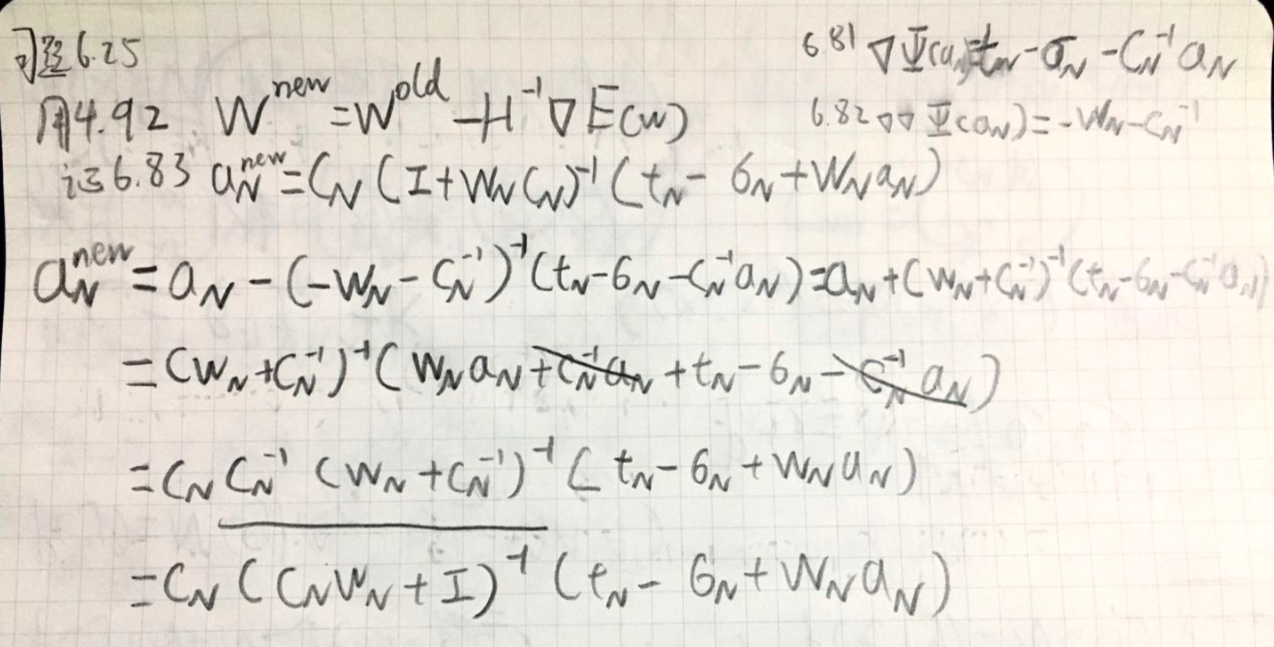 习题6.25
6.81 ∇Ψ(a_N)=t_N-σ_N-C_N^{-1}a_N
用4.92 W^{new}=W^{old}-H^{-1}∇E(w)
6.82 ∇∇Ψ(a_N)=-W_N-C_N^{-1}
证6.83 a_N^{new}=C_N(I+W_NC_N)^{-1}(t_N-σ_N+W_Na_N)
a_N^{new}=a_N-(-W_N-C_N^{-1})^{-1}(t_N-σ_N-C_N^{-1}a_N)=a_N+(W_N+C_N^{-1})^{-1}(t_N-σ_N-C_N^{-1}a_N)
=(W_N+C_N^{-1})^{-1}(W_Na_N+C_N^{-1}a_N+t_N-σ_N-C_N^{-1}a_N)
=C_NC_N^{-1}(W_N+C_N^{-1})^{-1}(t_N-σ_N+W_Na_N)
=C_N(C_NW_N+I)^{-1}(t_N-σ_N+W_Na_N)